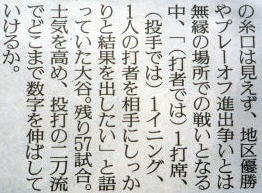 の糸口は見えず、地区優勝
やプレーオフ進出争いとは
無縁の場所での戦いとなる
中、「(打者では)1打席、
(投手では)1イニング、
1人の打者を相手にしっか
りと結果を出したい」と語
っていた大谷。残り57試合。
士気を高め、投打の二刀流
でどこまで数字を伸ばして
いけるか。